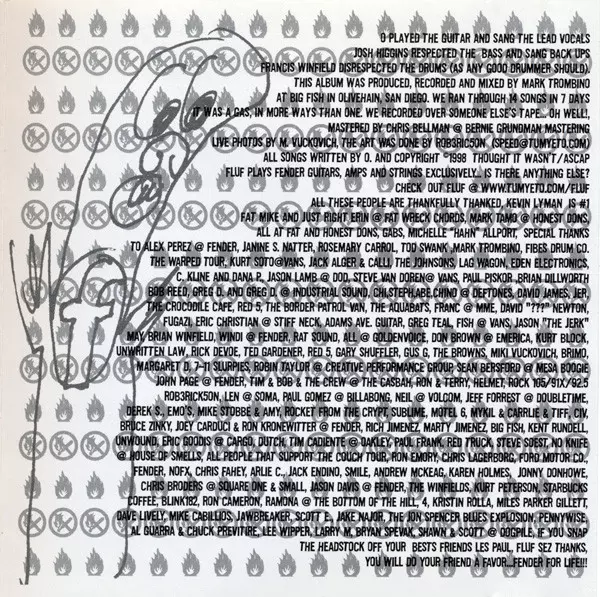 O PLAYED THE GUITAR AND SANG THE LEAD VOCALS
JOSH HIGGINS RESPECTED THE BASS AND SANG BACK UPS
FRANCIS WINFIELD DISRESPECTED THE DRUMS (AS ANY GOOD DRUMMER SHOULD).
THIS ALBUM WAS PRODUCED, RECORDED AND MIXED BY MARK TROMBINO
AT BIG FISH IN OLIVEHAIN, SAN DIEGO. WE RAN THROUGH 14 SONGS IN 7 DAYS
IT WAS A GAS, IN MORE WAYS THAN ONE. WE RECORDED OVER SOMEONE ELSE'S TAPE... OH WELL!,
MASTERED BY CHRIS BELLMAN @ BERNIE GRUNDMAN MASTERING
LIVE PHOTOS BY M. VUCKOVICH, THE ART WAS DONE BY ROB3RICK50N (SPEED@TUMYETO.COM)
ALL SONGS WRITTEN BY O. AND COPYRIGHT °1998 THOUGHT IT WASN'T/ASCAP
FLUF PLAYS FENDER GUITARS, AMPS AND STRINGS EXCLUSIVELY... IS THERE ANYTHING ELSE?
CHECK OUT FLUF @ WWW.TUMYETO.COM/FLUF
ALL THESE PEOPLE ARE THANKFULLY THANKED, KEVIN LYMAN IS #1
FAT MIKE AND JUST RIGHT ERIN @ FAT WRECK CHORDS, MARK TAMO @ HONEST DONS,
ALL AT FAT AND HONEST DONS, GABS, MICHELLE "HAHN" ALLPORT, SPECIAL THANKS
TO ALEX PEREZ @ FENDER, JANINE S. NATTER, ROSEMARY CARROL, TOD SWANK, MARK TROMBINO, FIBES DRUM CO.
THE WARPED TOUR, KURT SOTO@VANS, JACK ALGER & CALLI, THE JOHNSONS, LAG WAGON, EDEN ELECTRONICS,
C. KLINE AND DANA P., JASON LAMB @ DOD, STEVE VAN DOREN@ VANS, PAUL PISKOR, BRIAN DILLWORTH
BOB REED, GREG D. AND GREG L @ INDUSTRIAL SOUND, CHILSTEPHLABE.CHINO @ DEFTONES, DAVID JAMES, JER,
THE CROCODILE CAFE, RED 5, THE BORDER PATROL VAN, THE AQUABATS, FRANC @ MME, DAVID "???" NEWTON,
FUGAZI, ERIC CHRISTIAN @ STIFF NECK, ADAMS AVE. GUITAR, GREG TEAL, FISH @ VANS, JASON "THE JERK"
MAY, BRIAN WINFIELD, WINDI @ FENDER, RAT SOUND, ALL @ GOLDENVOICE, DON BROWN @ EMERICA, KURT BLOCK,
UNWRITTEN LAW, RICK DEVOE, TED GARDENER, RED 5, GARY SHUFFLER, GUS G, THE BROWNS, MIKI VUCKOVICH, BRIMO,
MARGARET D. 7-11 SLURPIES, ROBIN TAYLOR @ CREATIVE PERFORMANCE GROUP, SEAN BERSFORD @ MESA BOOGIE
JOHN PAGE @ FENDER, TIM & BOB & THE CREW @ THE CASBAH, RON & TERRY, HELMET, ROCK 105/91X/92.5
ROB3RICK50N, LEN @ SOMA, PAUL GOMEZ @ BILLABONG, NEIL @ VOLCOM, JEFF FORREST @ DOUBLETIME,
DEREK S., EMO'S, MIKE STOBBE & AMY, ROCKET FROM THE CRYPT, SUBLIME, MOTEL 6, MYKIL & CARRLIE & TIFF, CIV,
BRUCE ZINKY, JOEY CARDUCI & RON KRONEWITTER @ FENDER, RICH JIMENEZ, MARTY JIMENEZ, BIG FISH, KENT RUNDELL,
UNWOUND, ERIC GOODIS @ CARGO, DUTCH, TIM CADIENTE @ OAKLEY, PAUL FRANK, RED TRUCK, STEVE SOEST, NO KNIFE
@ HOUSE OF SMELLS, ALL PEOPLE THAT SUPPORT THE COUCH TOUR, RON EMORY, CHRIS LAGERBORG, FORD MOTOR CO.,
FENDER, NOFX, CHRIS FAHEY, ARLIE C., JACK ENDINO, SMILE, ANDREW MCKEAG, KAREN HOLMES, JONNY DONHOWE,
CHRIS BRODERS @ SQUARE ONE & SMALL, JASON DAVIS @ FENDER, THE WINFIELDS, KURT PETERSON, STARBUCKS
COFFEE, BLINK182, RON CAMERON, RAMONA @ THE BOTTOM OF THE HILL, 4, KRISTIN ROLLA, MILES PARKER GILLETT,
DAVE LIVELY, MIKE CABILLIOS, JAWBREAKER, SCOTT D., JAKE NAJOR, THE JON SPENCER BLUES EXPLOSION, PENNYWISE,
AL GUARRA & CHUCK PREVITIRE, LEE WIPPER, LARRY M, BRYAN SPEVAK, SHAWN & SCOTT @ OOGPILE, IF YOU SNAP
THE HEADSTOCK OFF YOUR BEST'S FRIENDS LES PAUL, FLUF SEZ THANKS,
YOU WILL DO YOUR FRIEND A FAVOR...FENDER FOR LIFE!!!
f